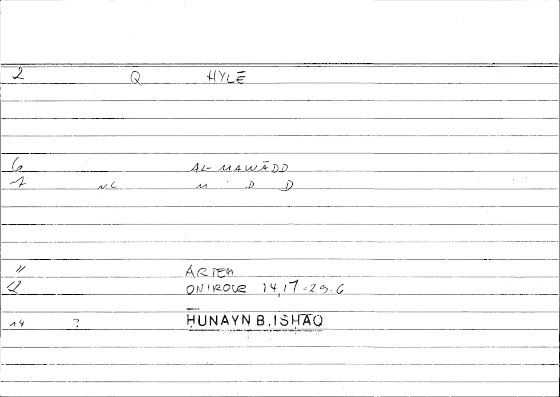 2 Q HYLĒ
6 AL-MAWĀDD
1 NC M D D
" ARTEM
12 ONIROCR 14,17-29.6
14 ? ḤUNAYN B. ISḤĀQ